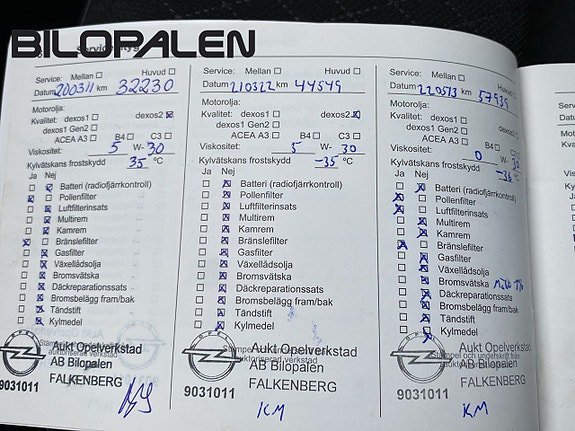 BILOPALEN
Service: Mellan Huvud
Datum 200311 km 32230
Motorolja:
Kvalitet: dexos1 dexos2
dexos1 Gen2
ACEA A3 B4 C3
Viskositet: 5 W- 30
Kylvätskans frostskydd 35 °C
Ja Nej
Batteri (radiofjärrkontroll)
Pollenfilter
Luftfilterinsats
Multirem
Kamrem
Bränslefilter
Gasfilter
Växellådsolja
Bromsvätska
Däckreparationssats
Bromsbelägg fram/bak
Tändstift
Kylmedel
Aukt Opelverkstad
AB Bilopalen
9031011 FALKENBERG
Service: Mellan Huvud
Datum 210322 km 44549
Motorolja:
Kvalitet: dexos1 dexos2
dexos1 Gen2
ACEA A3 B4 C3
Viskositet: 5 W- 30
Kylvätskans frostskydd -35 °C
Ja Nej
Batteri (radiofjärrkontroll)
Pollenfilter
Luftfilterinsats
Multirem
Kamrem
Bränslefilter
Gasfilter
Växellådsolja
Bromsvätska
Däckreparationssats
Bromsbelägg fram/bak
Tändstift
Kylmedel
Aukt Opelverkstad
AB Bilopalen
9031011 FALKENBERG
KM
Service: Mellan Huvud
Datum 220513 km 57939
Motorolja:
Kvalitet: dexos1 dexos2
dexos1 Gen2
ACEA A3 B4 C3
Viskositet: 0 W-
Kylvätskans frostskydd °C
Ja Nej
Batteri (radiofjärrkontroll)
Pollenfilter
Luftfilterinsats
Multirem
Kamrem
Bränslefilter
Gasfilter
Växellådsolja
Bromsvätska
Däckreparationssats
Bromsbelägg fram/bak
Tändstift
Kylmedel
Stämpel och underskrift från
Aukt Opelverkstad
AB Bilopalen
9031011 FALKENBERG
KM